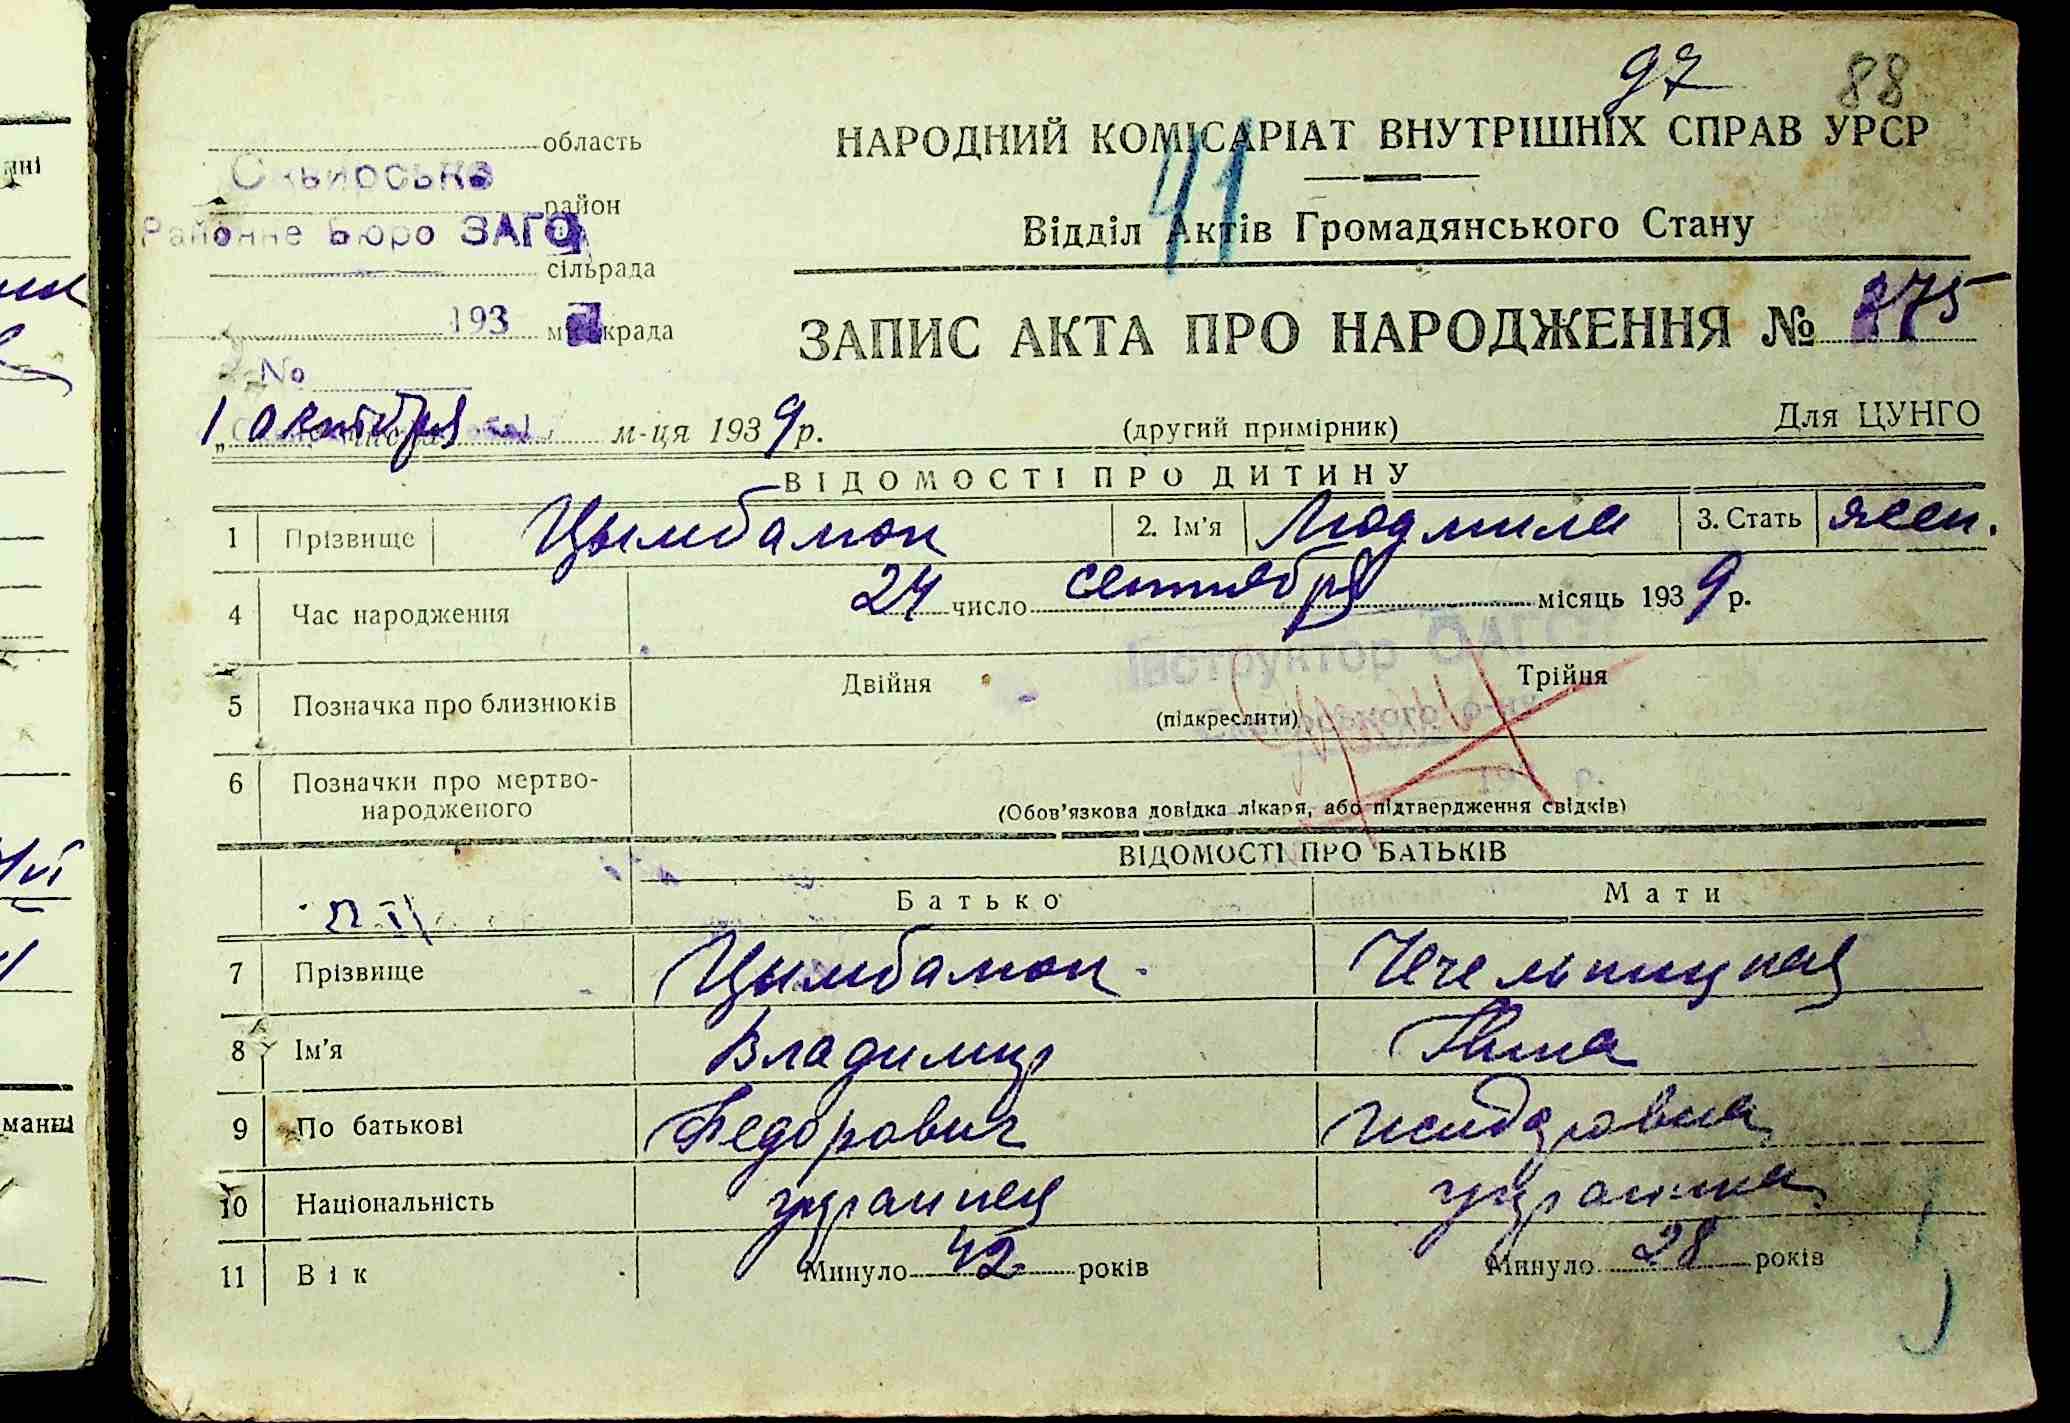 97 88
область
НАРОДНИЙ КОМІСАРІАТ ВНУТРІШНІХ СПРАВ УРСР
Сквирське
район
41
Районне Бюро ЗАГС
Відділ Актів Громадянського Стану
сільрада
193 міськрада
ЗАПИС АКТА ПРО НАРОДЖЕННЯ № 275
№
1 октября м-ця 1939 р. (другий примірник) Для ЦУНГО
ВІДОМОСТІ ПРО ДИТИНУ
1 Прізвище Цымбалюк 2. Ім'я Людмила 3. Стать жен.
4 Час народження 24 число сентября місяць 1939 р.
Інструктор ОАГС
5 Позначка про близнюків Двійня Трійня
(підкреслити)
6 Позначки про мертво-
народженого
(Обов'язкова довідка лікаря, або підтвердження свідків)
ВІДОМОСТІ ПРО БАТЬКІВ
Батько Мати
7 Прізвище Цымбалюк Чечельницкая
8 Ім'я Владимир Анна
9 По батькові Федорович Исидоровна
10 Національність украинец украинка
11 Вік Минуло 42 років Минуло 28 років